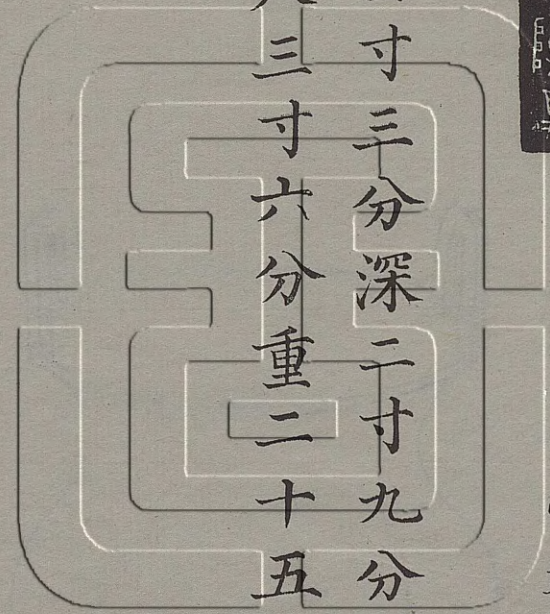 寸三分深二寸九分
三寸六分重二十五